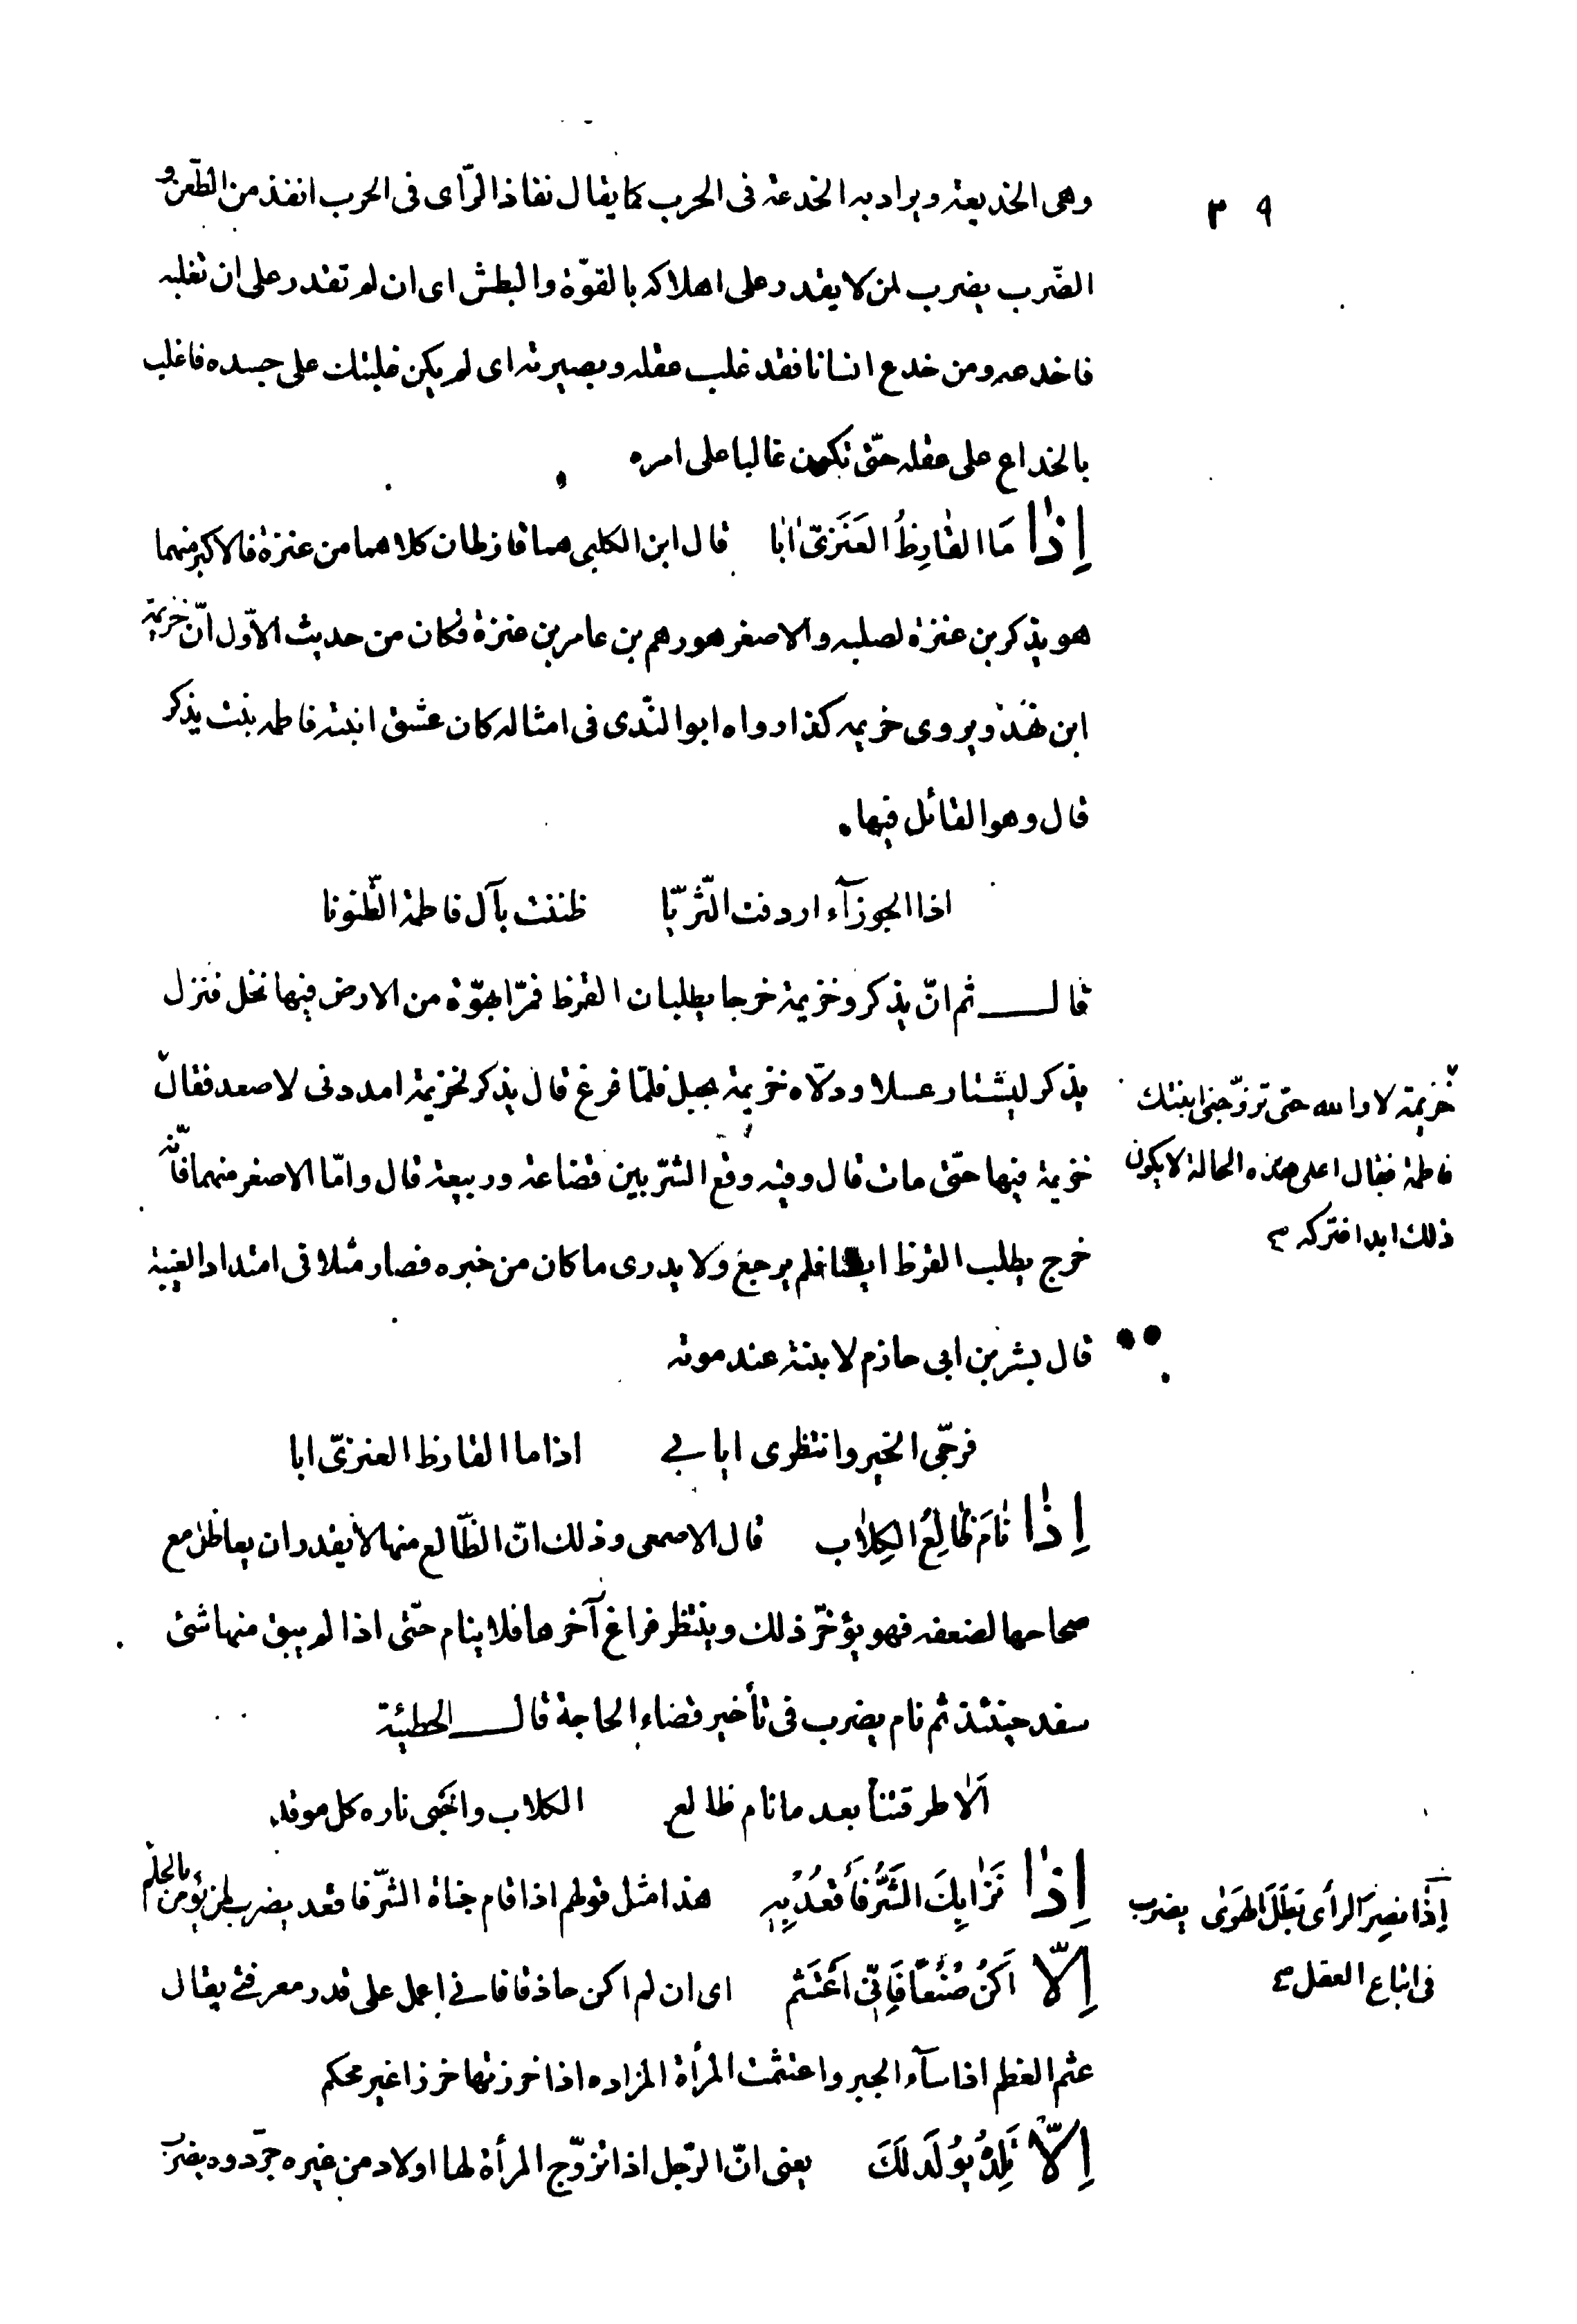 ٣٩
وهى الخديعة ويراد به الخدعة فى الحرب كما يقال نفاذ الرّاى فى الحرب انفذ من الطّعن و
الضّرب يضرب لمن لا يقدر على اهلاكه بالقوّة والبطش اى ان لم تقدر على ان تغلبه
فاخدعه ومن خدع انسانا فقد غلب عقله وبصيرته اى لم يكن غلبتك على جسده فاغلب
بالخداع على عقله حتّى تكون غالبا على امره
اِذٰا مَا القٰارِظُ العَنَزىّ اٰبٰا قال ابن الكلبى هما قارظان كلاهما من عنزة فالاكبر منهما
هو يذكر بن عنزة لصلبه والاصغر هو رهم بن عامر بن عنزة فكان من حديث الاوّل انّ خزيمة
ابن نهد ويروى خزيمه كذا رواه ابو النّدى فى امثاله كان عشق ابنته فاطمه بنت يذكر
قال وهو القائل فيها
اذا الجوزآء اردفت الثّريّا ظننت بآل فاطمة الظّنونا
قال ثم انّ يذكر وخزيمة خرجا يطلبان القرظ فمرّا بهوّة من الارض فيها نحل فنزل
يذكر ليشتار عسلا ودلّاه خزيمة بحبل فلمّا فرغ قال يذكر لخزيمة امددنى لاصعد فقال
خزيمة لا والله حتى تزوّجنى ابنتك
فاطمة فقال اعلى هذه الحالة لا يكون
ذلك ابدا فتركه صح
خزيمة فيها حتّى مات قال وفيه وقع الشرّ بين قضاعة وربيعة قال وامّا الاصغر منهما فانّه
خرج يطلب القرظ ايضا فلم يرجع ولا يدرى ما كان من خبره فصار مثلا فى امتداد الغيبة
قال بشر بن ابى حازم لابنته عند موته
فرجّى الخير وانتظرى ايابى اذا ما القارظ العنزىّ ابا
اِذٰا نٰامَ ظٰالِعُ الكِلاٰب قال الاصمعى وذلك انّ الظّالع منها لا يقدر ان يعاظل مع
صحاحها لضعفه فهو يؤخّر ذلك وينتظر فراغ آخرها فلا ينام حتّى اذا لم يبق منها شئ
سفد حينئذ ثم نام يضرب فى تأخير قضاء الحاجة قال الحطيئة
اَلاٰ طرقتنا بعد ما نام ظالع الكلاب واخبى ناره كل موقد
اِذٰا نَزٰا بِكَ الشَّرُّ فَاقْعُدْ بِهِ هذا مثل قولهم اذا قام جناة الشّر فاقعد يضرب لمن يؤمن بالحلم
اِذٰا نصِرَ الرأى بَطَلَ الهَوٰى يضرب
فى اتباع العقل صح
اِلّا اَكُنْ صُنْعًا فَاِنّى اَعْتَثم اى ان لم اكن حاذقا فانى اعمل على قدر معرفتى يقال
عثم العظم اذا سآء الجبر واعتثمت المرأة المزاده اذا خرزتها خرزا غير محكم
اِلّا تَلِدْ يُوْلَد لَكَ يعنى انّ الرّجل اذا تزوّج المرأة لها اولاد من غيره جرّدوه يضرب